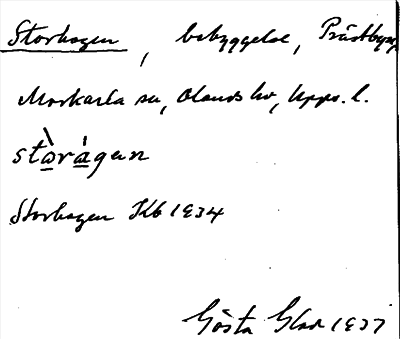 Storhagen, bebyggelse, Prästbyn,
Morkarla sn, Olands hd, Upps. l.
stòrágan
Storhagen Jkb 1934
Gösta Glad 1937